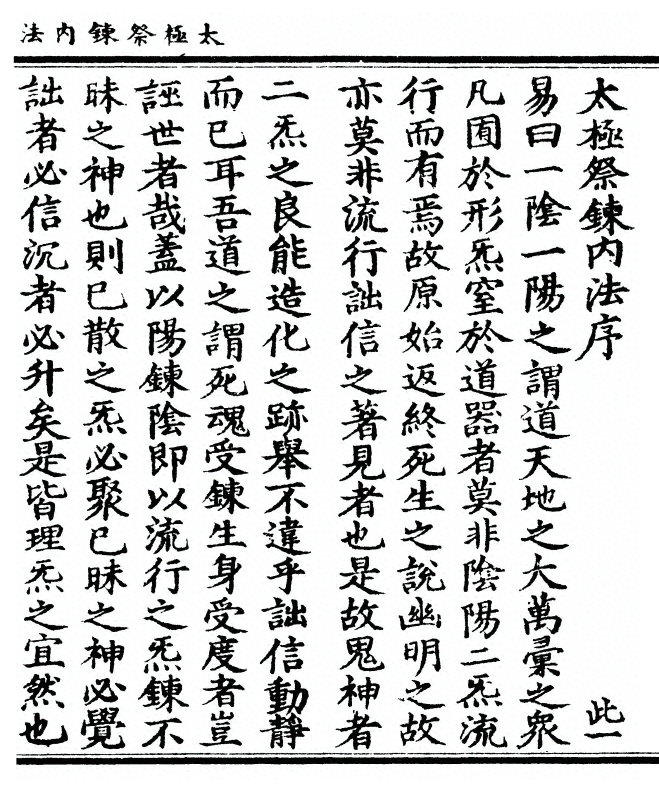 太極祭鍊内法
太極祭鍊内法序
此一
易曰一陰一陽之謂道天地之大萬彙之衆
凡囿於形炁窒於道器者莫非陰陽二炁流
行而有焉故原始返終死生之說幽明之故
亦莫非流行詘信之著見者也是故鬼神者
二炁之良能造化之跡舉不違乎詘信動靜
而已耳吾道之謂死魂受鍊生身受度者豈
誣世者哉蓋以陽鍊陰即以流行之炁鍊不
昧之神也則已散之炁必聚已昧之神必覺
詘者必信沉者必升矣是皆理炁之宜然也